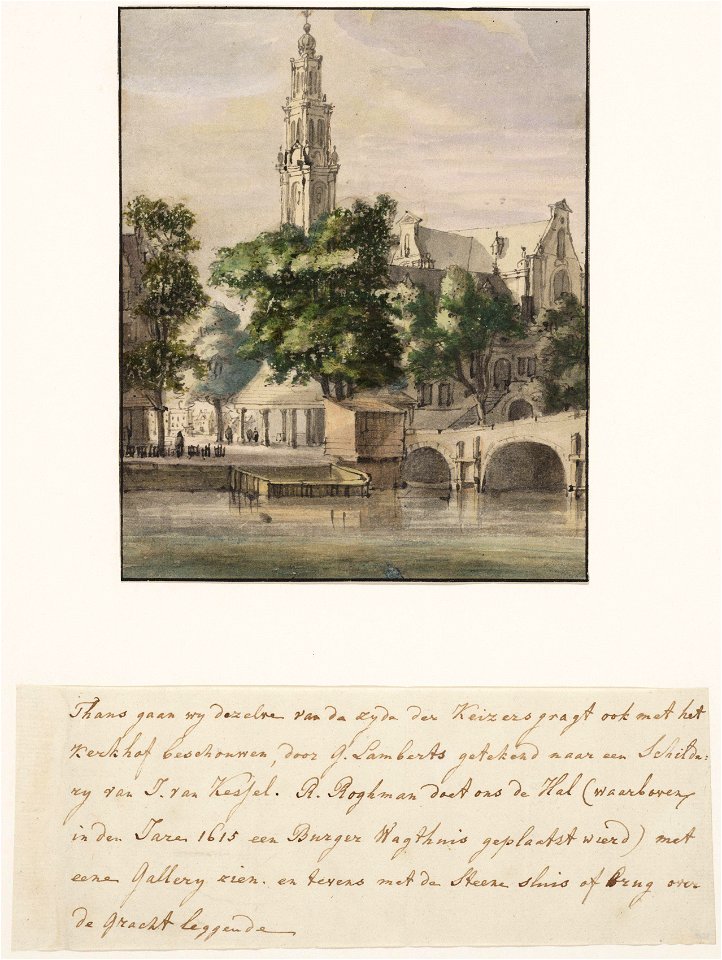 Thans gaan wy dezelve van de zyde der Keizersgragt ook met het
Kerkhof beschouwen, door G. Lamberts getekend naar een Schilde-
ry van J. van Kessel. R. Roghman doet ons de Hal (waarboven
in den Jare 1615 een Burger Wagthuis geplaatst wierd) met
eene Gallery zien. en tevens met de Steene sluis of brug over
de gracht leggende